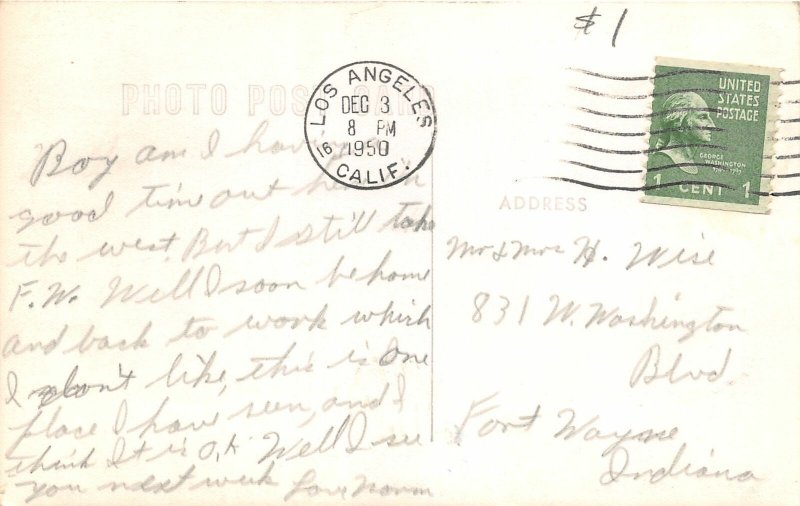 $1
PHOTO POST CARD
LOS ANGELES
DEC 3
8 PM
1950
16
CALIF.
UNITED
STATES
POSTAGE
GEORGE
WASHINGTON
1 CENT 1
ADDRESS
Boy am I having a
good time out here in
the west. But I still take
F.W. Well I soon be home
and back to work which
I don't like, this is one
place I have seen, and I
think It is O.K. Well I see
you next week Love Norm
Mr & Mrs H. Wise
831 W. Washington
Blvd.
Fort Wayne
Indiana